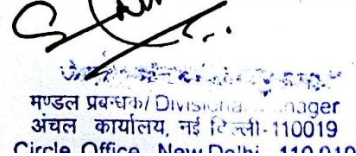 मण्डल प्रबन्धक/ Divisional Manager
अंचल कार्यालय, नई दिल्ली-110019
Circle Office, New Delhi - 110 019